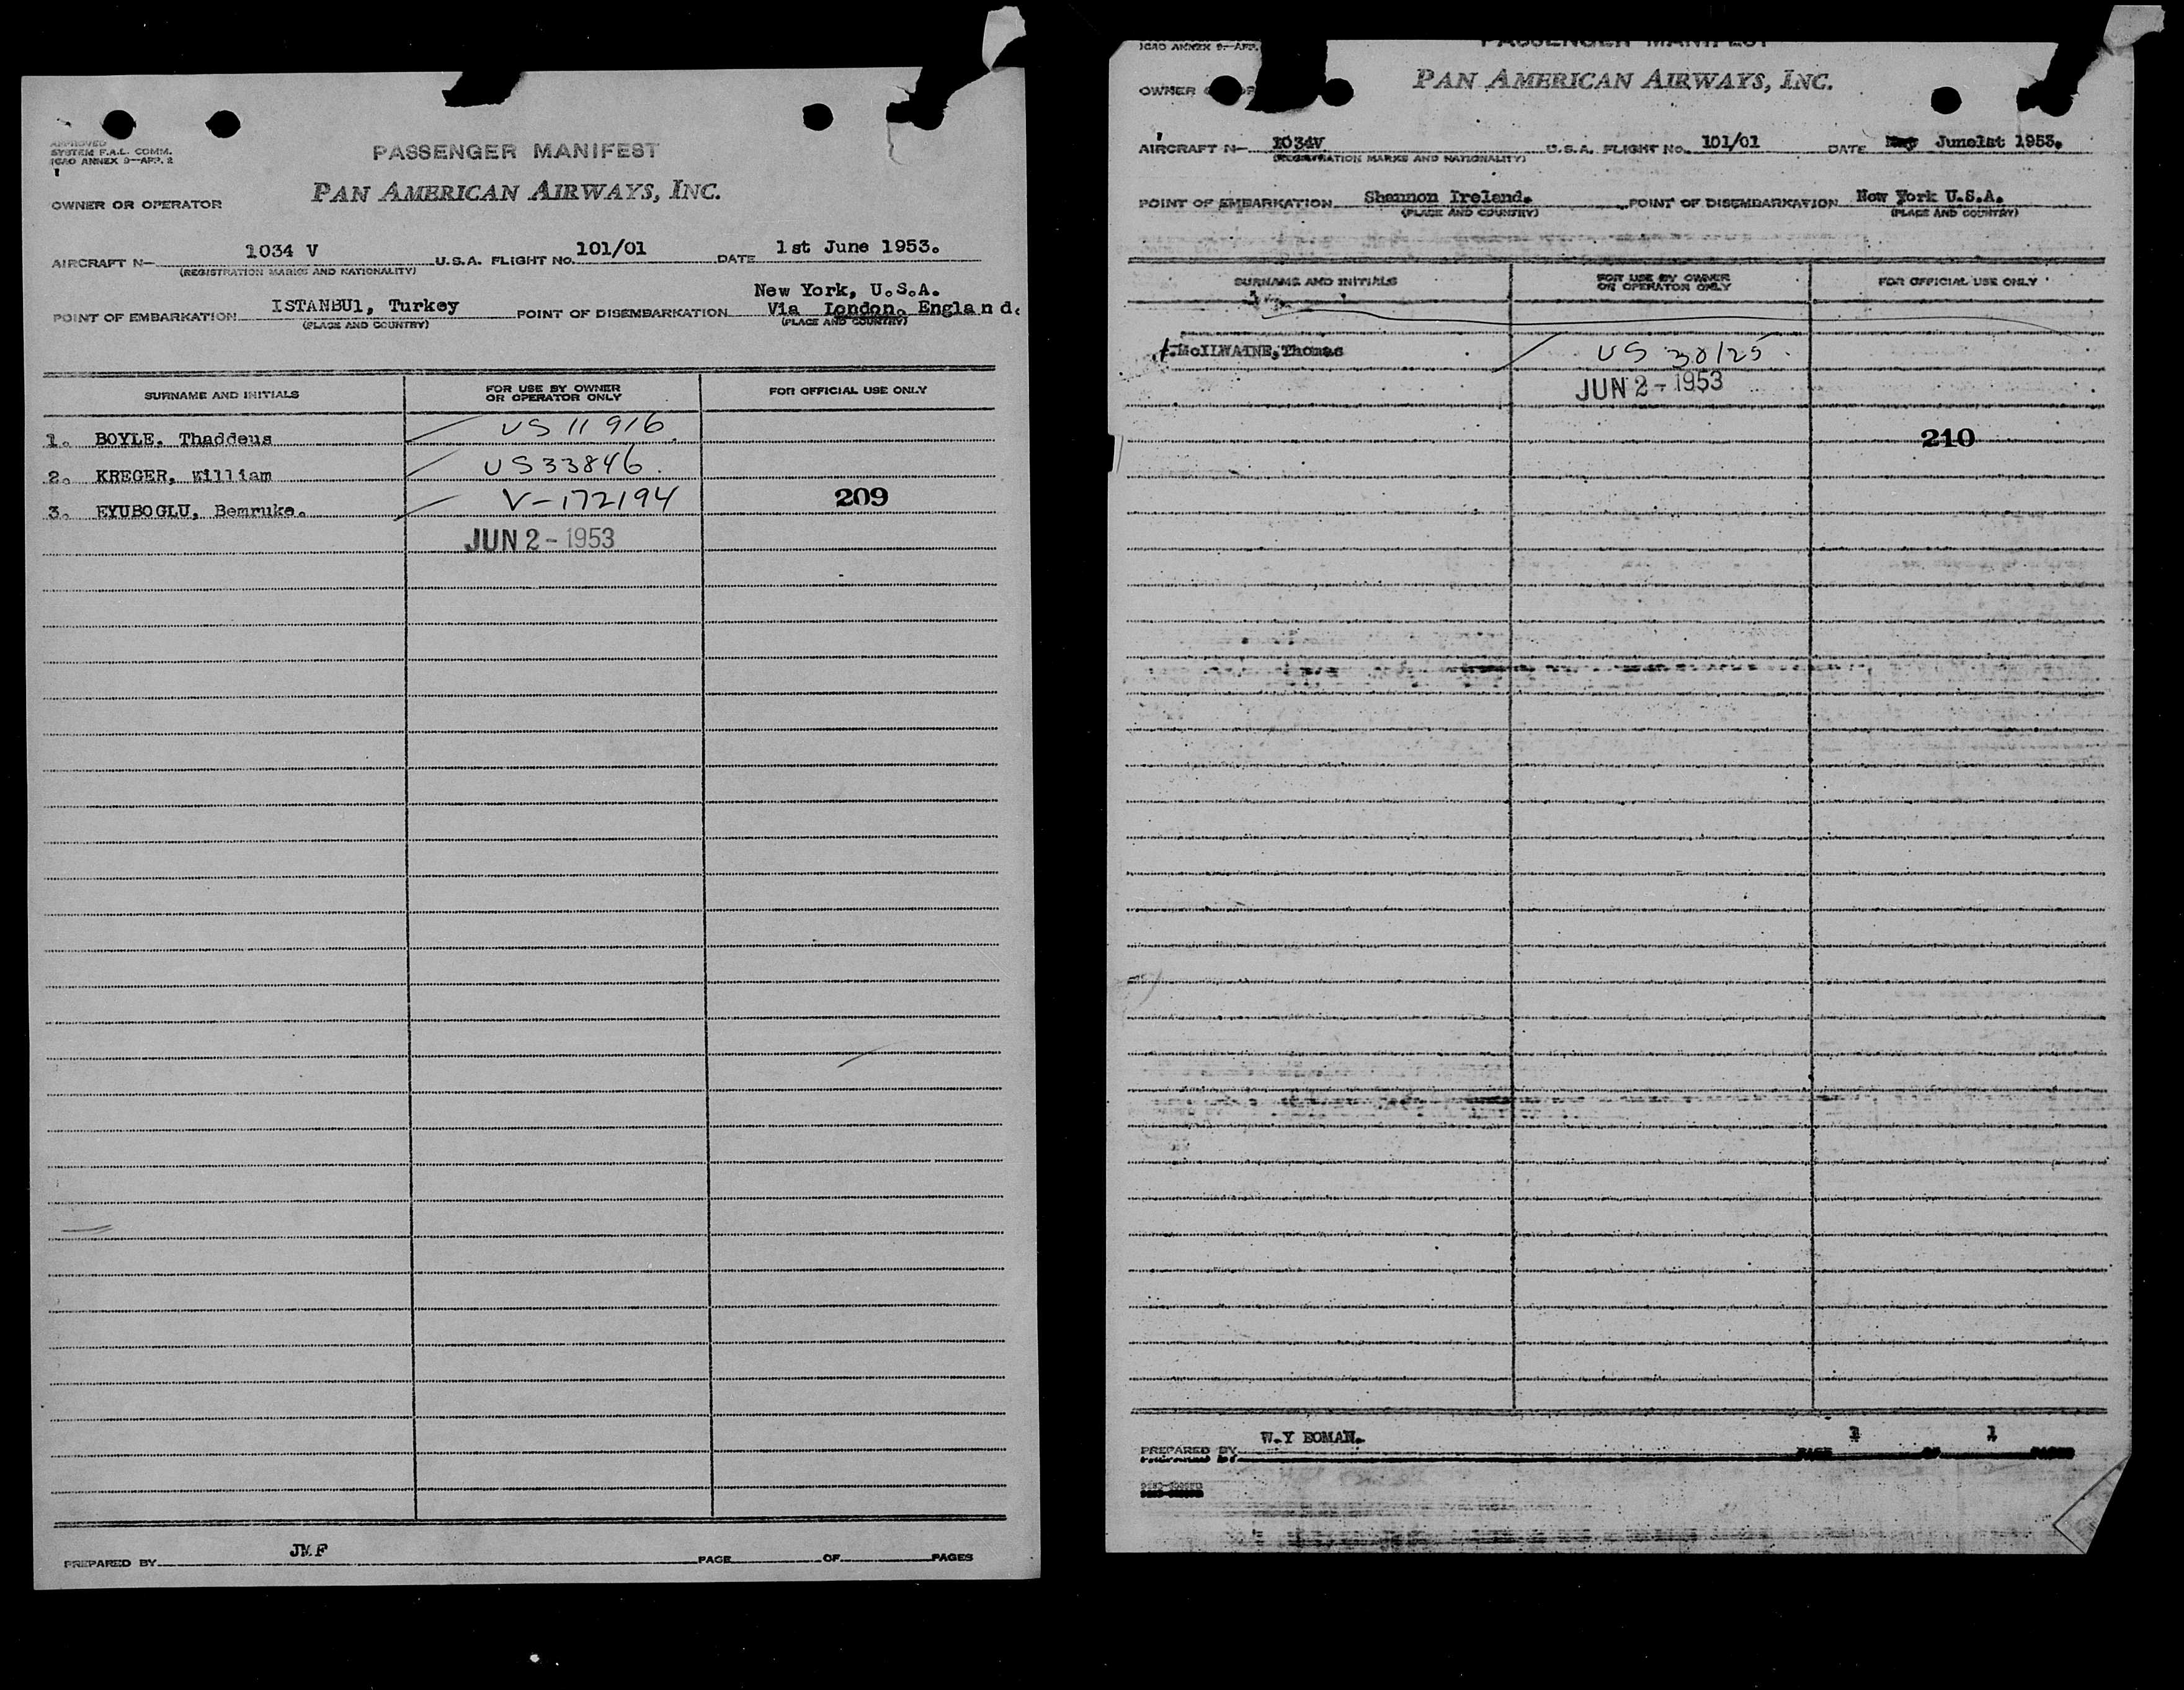 APPROVED
SYSTEM F.A.L. COMM.
ICAO ANNEX 9—APP. 2
PASSENGER MANIFEST
OWNER OR OPERATOR PAN AMERICAN AIRWAYS, INC.
AIRCRAFT N— 1034 V U.S.A. FLIGHT NO. 101/01 DATE 1st June 1953.
(REGISTRATION MARKS AND NATIONALITY)
New York, U.S.A.
POINT OF EMBARKATION ISTANBUl, Turkey POINT OF DISEMBARKATION Via London. England.
(PLACE AND COUNTRY) (PLACE AND COUNTRY)
SURNAME AND INITIALS FOR USE BY OWNER OR OPERATOR ONLY FOR OFFICIAL USE ONLY
1. BOYLE. Thaddeus US 11916
2. KREGER, William US33846.
3. EYUBOGLU, Bemruke. V-172194 209
JUN 2 - 1953
PREPARED BY JMF PAGE OF PAGES
ICAO ANNEX 9—APP.
PASSENGER MANIFEST
OWNER OR PAN AMERICAN AIRWAYS, INC.
AIRCRAFT N— 1034V U.S.A. FLIGHT NO. 101/01 DATE May June1st 1953.
(REGISTRATION MARKS AND NATIONALITY)
POINT OF EMBARKATION Shannon Ireland. POINT OF DISEMBARKATION New York U.S.A.
(PLACE AND COUNTRY) (PLACE AND COUNTRY)
SURNAME AND INITIALS FOR USE BY OWNER OR OPERATOR ONLY FOR OFFICIAL USE ONLY
1. McILWAINE, Thomas US 30125
JUN 2 - 1953
210
W.Y EOMAN. 1 1
PREPARED BY PAGE OF PAGES